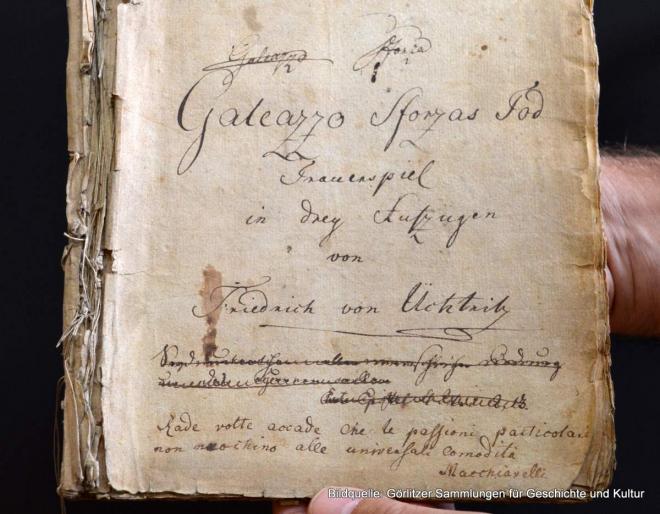 Galeazzo Sforza
Galeazzo Sforzas Tod
Trauerspiel
in drey Aufzügen
von
Friedrich von Üchtritz
Rade volte accade che le passioni particolari
non nuochino alle universali comodità
Macchiavelli
Bildquelle: Görlitzer Sammlungen für Geschichte und Kultur